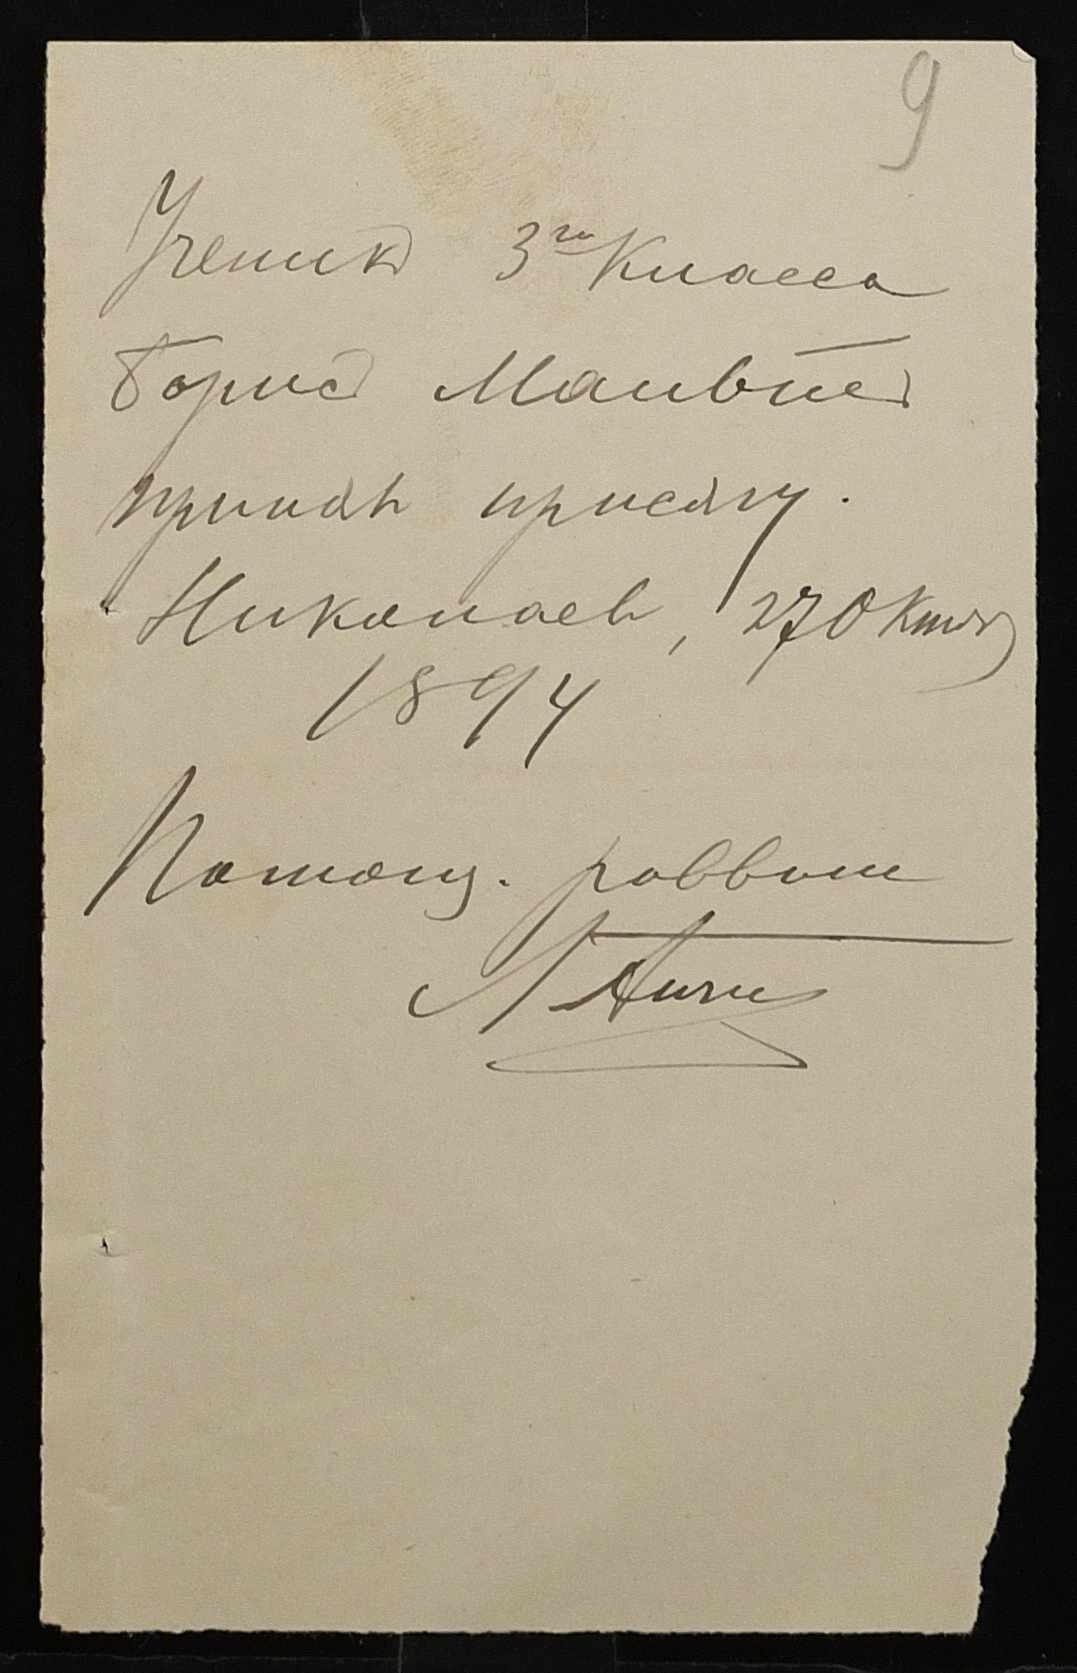 9
Ученикъ 3го Класса
Борисъ
принялъ присягу.
Николаевъ, 27 Октября
1894
Помощ. раввина